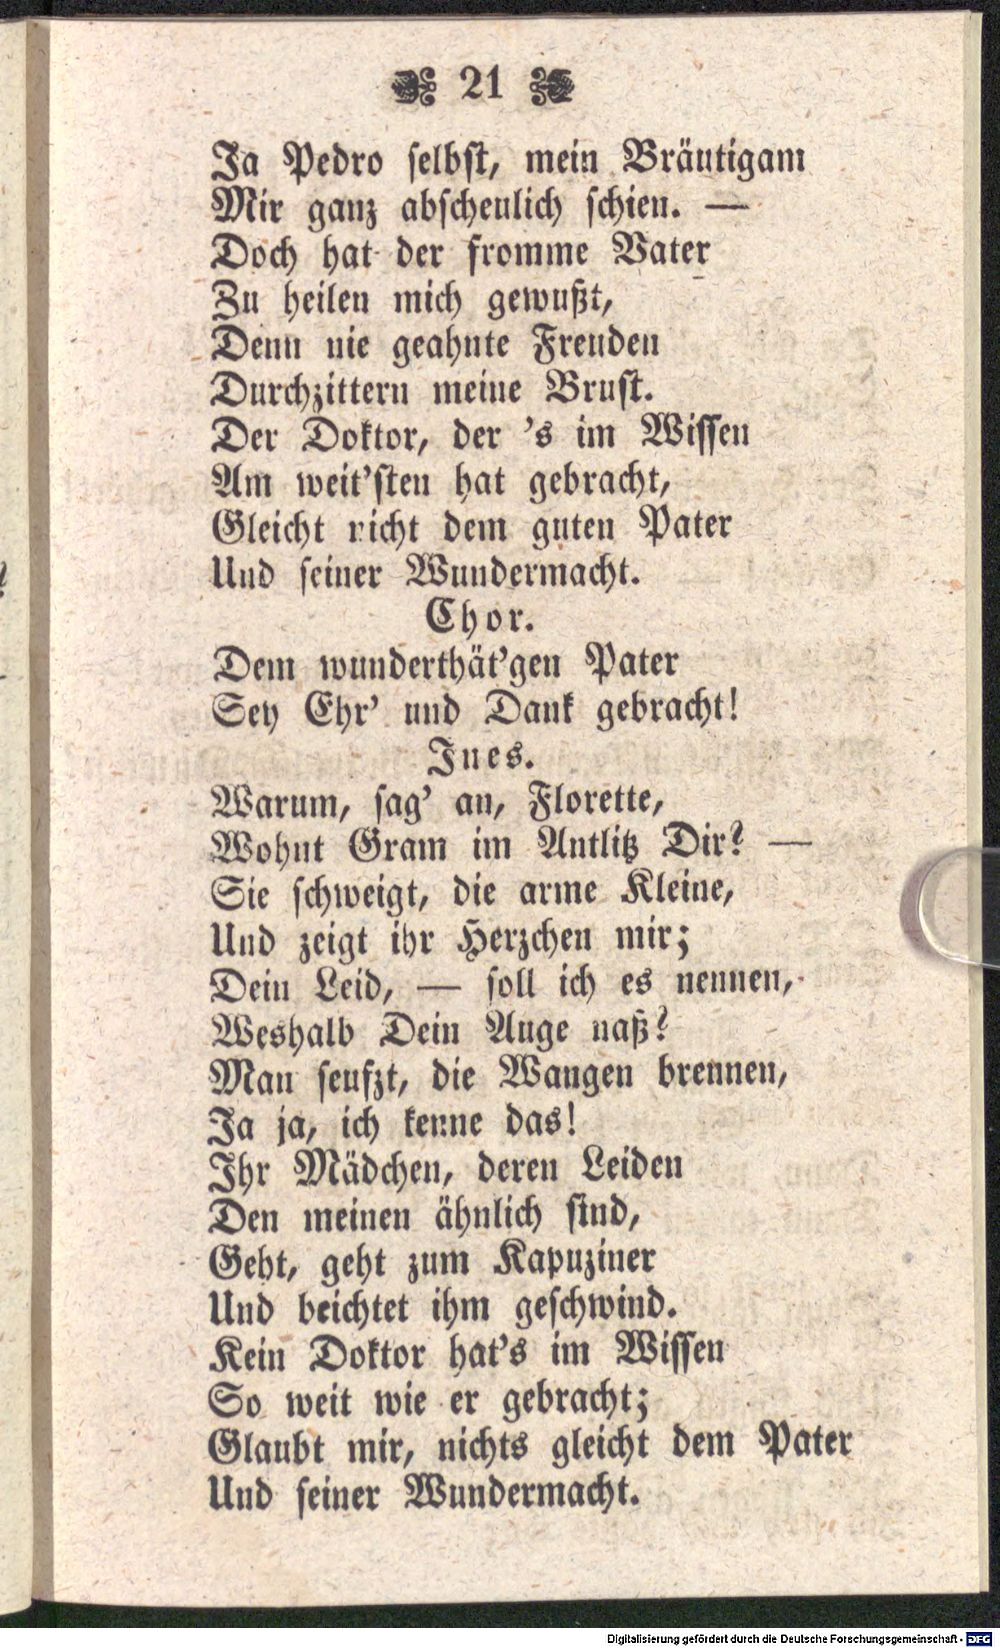 21
Ja Pedro selbst, mein Bräutigam
Mir ganz abscheulich schien. —
Doch hat der fromme Vater
Zu heilen mich gewußt,
Denn nie geahnte Freuden
Durchzittern meine Brust.
Der Doktor, der 's im Wissen
Am weit'sten hat gebracht,
Gleicht nicht dem guten Pater
Und seiner Wundermacht.
Chor.
Dem wunderthät'gen Pater
Sey Ehr' und Dank gebracht!
Ines.
Warum, sag' an, Florette,
Wohnt Gram im Antlitz Dir? —
Sie schweigt, die arme Kleine,
Und zeigt ihr Herzchen mir;
Dein Leid, — soll ich es nennen,
Weshalb Dein Auge naß?
Man seufzt, die Wangen brennen,
Ja ja, ich kenne das!
Ihr Mädchen, deren Leiden
Den meinen ähnlich sind,
Geht, geht zum Kapuziner
Und beichtet ihm geschwind.
Kein Doktor hat's im Wissen
So weit wie er gebracht;
Glaubt mir, nichts gleicht dem Pater
Und seiner Wundermacht.
Digitalisierung gefördert durch die Deutsche Forschungsgemeinschaft - DFG